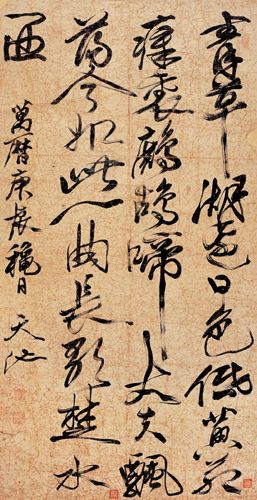 青草湖邊日色低黃茅
瘴裏鷓鴣啼丈夫飄
蕩今如此一曲長歌楚水
西
萬曆庚辰穐日 天池